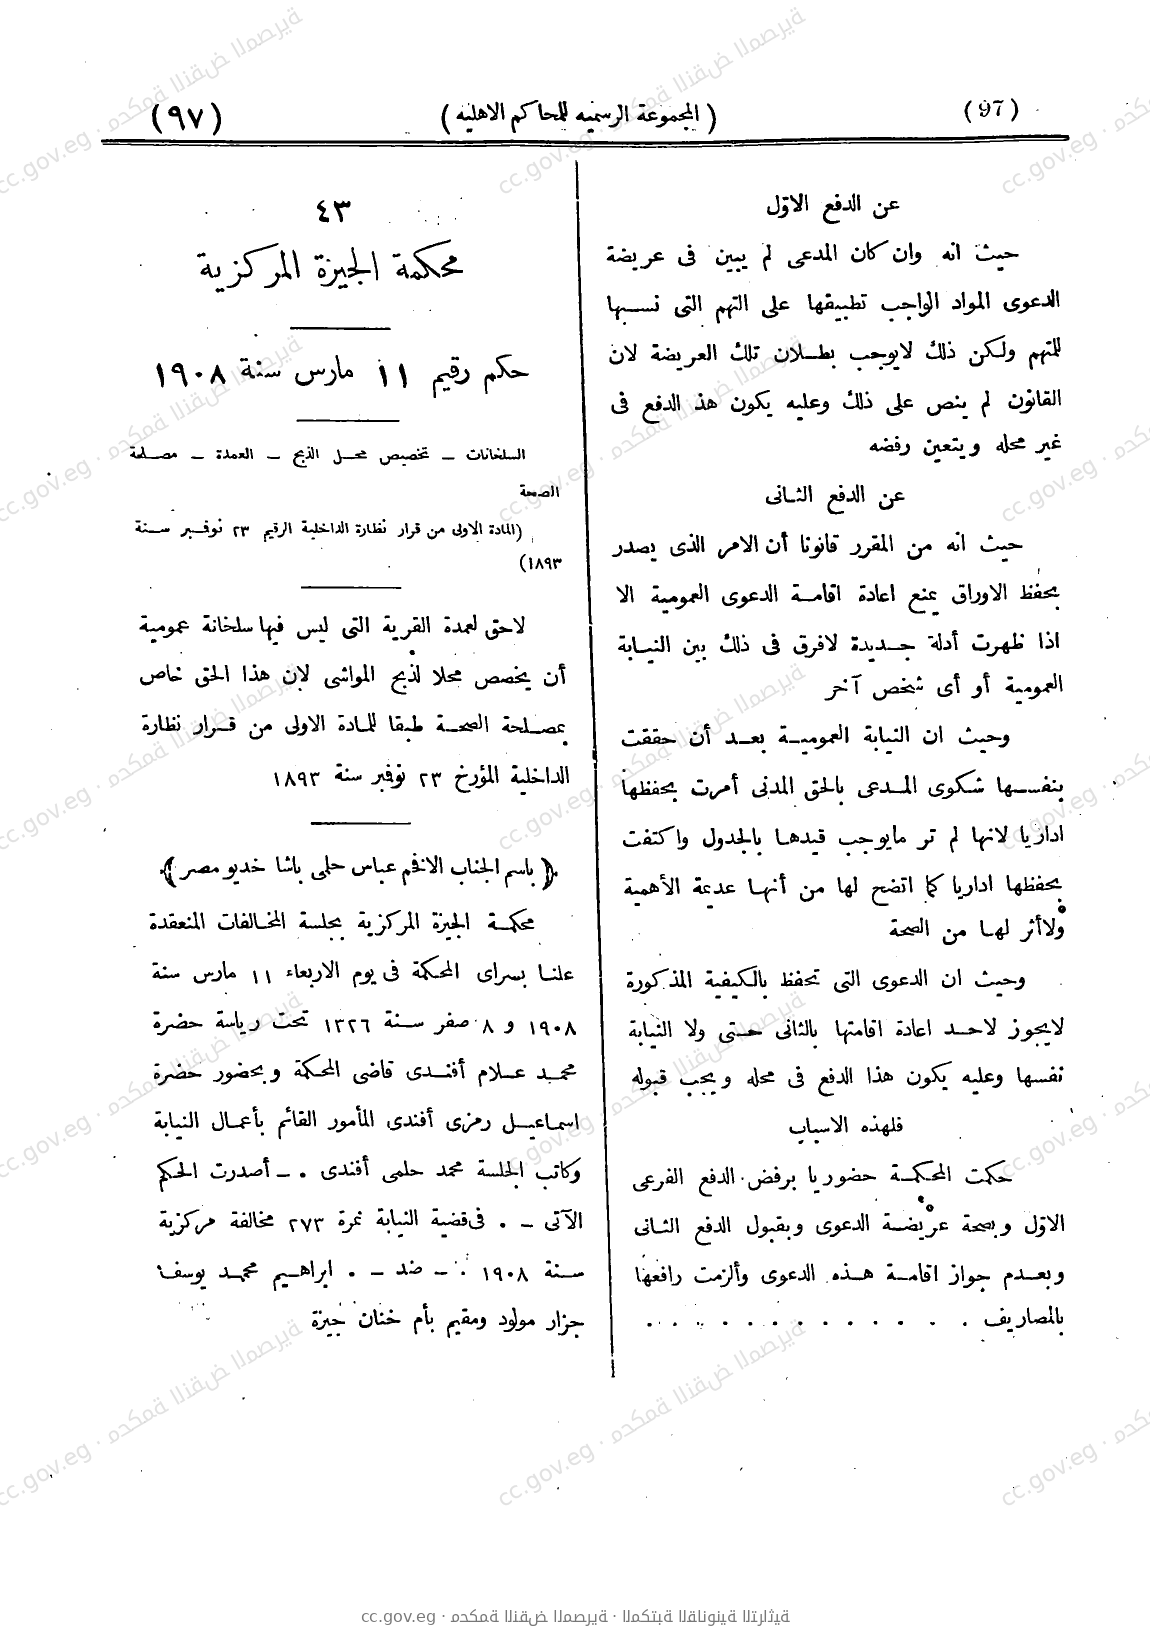 (97) (المجموعة الرسميه للمحاكم الاهليه) (٩٧)
عن الدفع الاوّل
حيث انه وان كان المدعى لم يبين فى عريضة
الدعوى المواد الواجب تطبيقها على التهم التى نسبها
للمتهم ولكن ذلك لايوجب بطلان تلك العريضة لان
القانون لم ينص على ذلك وعليه يكون هذ الدفع فى
غير محله ويتعين رفضه
عن الدفع الثانى
حيث انه من المقرر قانونا أن الامر الذى يصدر
بحفظ الاوراق يمنع اعادة اقامة الدعوى العمومية الا
اذا ظهرت أدلة جديدة لافرق فى ذلك بين النيابة
العمومية أو أى شخص آخر
وحيث ان النيابة العمومية بعد أن حققت
بنفسها شكوى المدعى بالحق المدنى أمرت بحفظها
اداريا لانها لم تر مايوجب قيدها بالجدول واكتفت
بحفظها اداريا كما اتضح لها من أنها عديمة الأهمية
ولاأثر لها من الصحة
وحيث ان الدعوى التى تحفظ بالكيفية المذكورة
لايجوز لاحد اعادة اقامتها بالثانى حتى ولا النيابة
نفسها وعليه يكون هذا الدفع فى محله ويجب قبوله
فلهذه الاسباب
حكمت المحكمة حضوريا برفض الدفع الفرعى
الاوّل وبصحة عريضة الدعوى وبقبول الدفع الثانى
وبعدم جواز اقامة هذه الدعوى وألزمت رافعها
بالمصاريف . . . . . . . . . . . . .
٤٣
محكمة الجيزة المركزية
حكم رقيم ١١ مارس سنة ١٩٠٨
السلخانات – تخصيص محل الذبح – العمدة – مصلحة
الصحة
(المادة الاولى من قرار نظارة الداخلية الرقيم ٢٣ نوفمبر سنة
١٨٩٣)
لاحق لعمدة القرية التى ليس فيها سلخانة عمومية
أن يخصص محلا لذبح المواشى لان هذا الحق خاص
بمصلحة الصحة طبقا للمادة الاولى من قرار نظارة
الداخلية المؤرخ ٢٣ نوفمبر سنة ١٨٩٣
﴿باسم الجناب الافخم عباس حلمى باشا خديو مصر﴾
محكمة الجيزة المركزية بجلسة المخالفات المنعقدة
علنا بسراى المحكمة فى يوم الاربعاء ١١ مارس سنة
١٩٠٨ و ٨ صفر سنة ١٣٢٦ تحت رياسة حضرة
محمد علام أفندى قاضى المحكمة وبحضور حضرة
اسماعيل رمزى أفندى المأمور القائم بأعمال النيابة
وكاتب الجلسة محمد حلمى أفندى . – أصدرت الحكم
الآتى – . فى قضية النيابة نمرة ٢٧٣ مخالفة مركزية
سنة ١٩٠٨ . – ضد – . ابراهيم محمد يوسف
جزار مولود ومقيم بأم خنان جيزة
cc.gov.eg · محكمة النقض المصرية · المكتبة القانونية التراثية